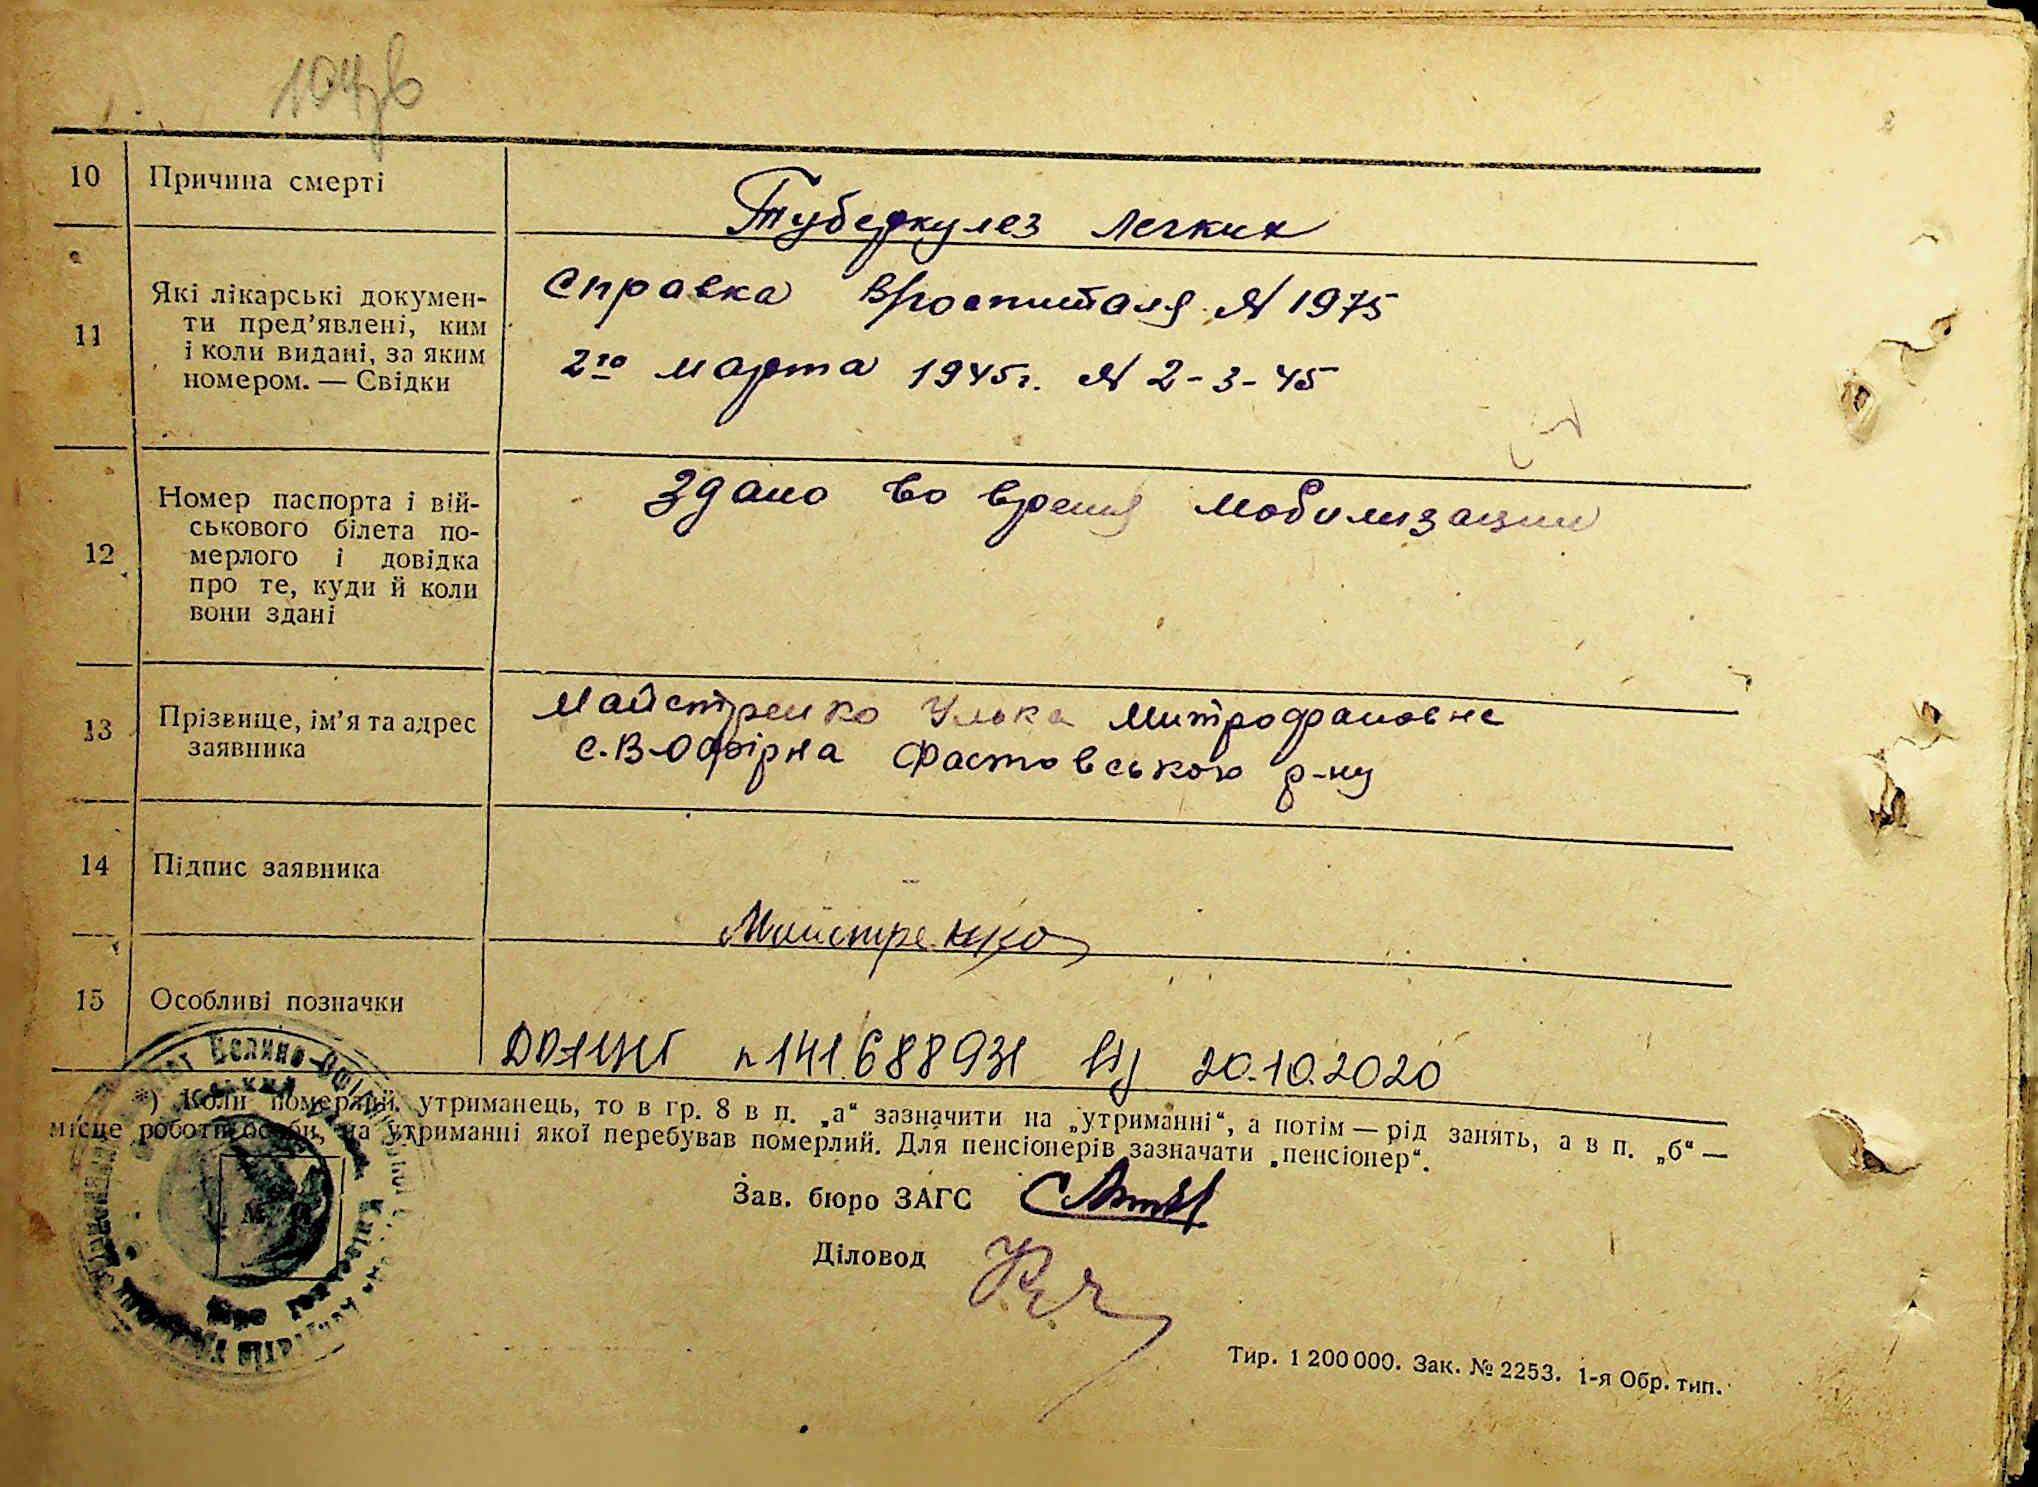 104
10 Причина смерті
Туберкулез легких
11 Які лікарські докумен-
ти пред’явлені, ким
і коли видані, за яким
номером. — Свідки
Справка Вгоспиталя N 1975
2го марта 1945г. N 2-3-45
12 Номер паспорта і вій-
ськового білета по-
мерлого і довідка
про те, куди й коли
вони здані
Здано во время мобилизации
13 Прізвище, ім’я та адрес
заявника
Майстренко Улька Митрофановне
с. В-Офірна Фастовського р-ну
14 Підпис заявника
Майстренко
15 Особливі позначки
141688931 20.10.2020
*) Коли померлий утриманець, то в гр. 8 в п. „а“ зазначити на „утриманні“, а потім — рід занять, а в п. „б“ —
місце роботи особи, на утриманні якої перебував померлий. Для пенсіонерів зазначати „пенсіонер“.
Зав. бюро ЗАГС
Діловод
Тир. 1 200 000. Зак. № 2253. 1-я Обр. тип.